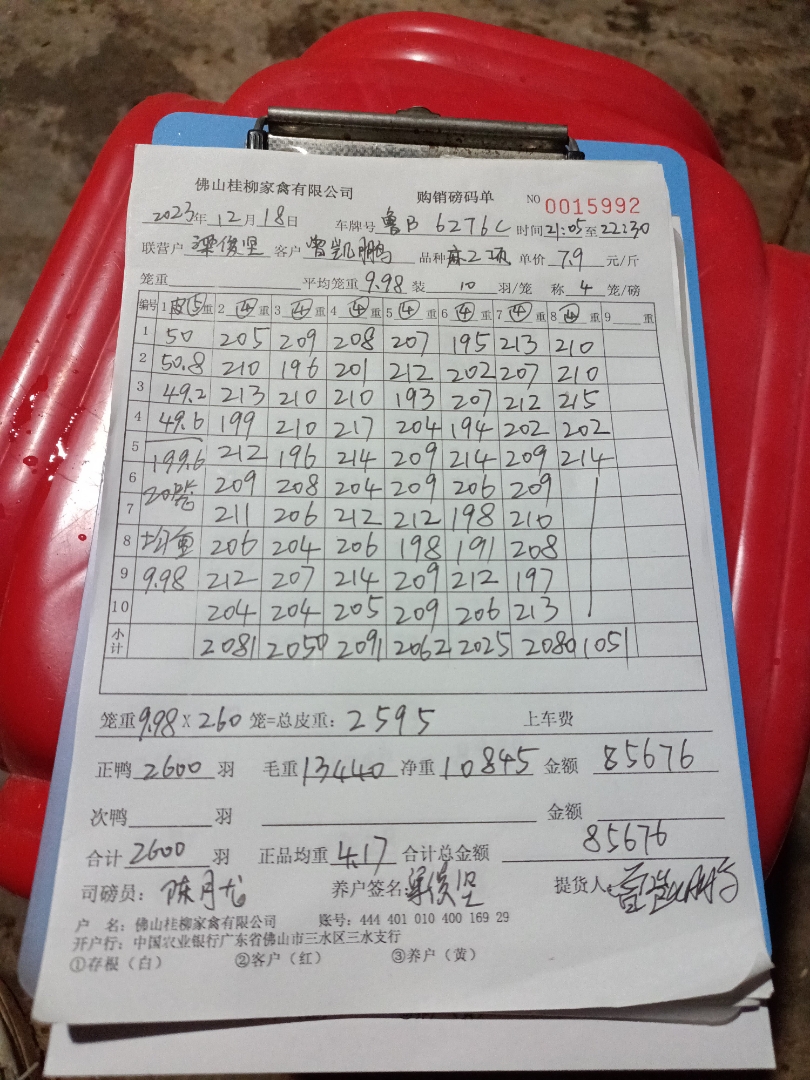 佛山桂柳家禽有限公司 购销磅码单 NO 0015992
2023年12月18日 车牌号 鲁B 6276C 时间21:05至22:30
联营户 梁俊坚 客户 曾凯鹏 品种 麻2项 单价 7.9 元/斤
笼重 平均笼重 9.98 装 10 羽/笼 称 4 笼/磅
编号 1 皮⑤重 2 ④重 3 ④重 4 ④重 5 ④重 6 ④重 7 ④重 8 ④重 9 重
1 50 205 209 208 207 195 213 210
2 50.8 210 196 201 212 202 207 210
3 49.2 213 210 210 193 207 212 215
4 49.6 199 210 217 204 194 202 202
5 199.6 212 196 214 209 214 209 214
6 20笼 209 208 204 209 206 209
7 211 206 212 212 198 210
8 均重 206 204 206 198 191 208
9 9.98 212 207 214 209 212 197
10 204 204 205 209 206 213
小计 2081 2050 2091 2062 2025 2080 1051
笼重9.98 X 260 笼=总皮重: 2595 上车费
正鸭 2600 羽 毛重 13440 净重 10845 金额 85676
次鸭 羽 金额
合计 2600 羽 正品均重 4.17 合计总金额 85676
司磅员: 陈月龙 养户签名: 梁俊坚 提货人: 曾凯鹏
户 名: 佛山桂柳家禽有限公司 账号: 444 401 010 400 169 29
开户行: 中国农业银行广东省佛山市三水区三水支行
①存根（白） ②客户（红） ③养户（黄）